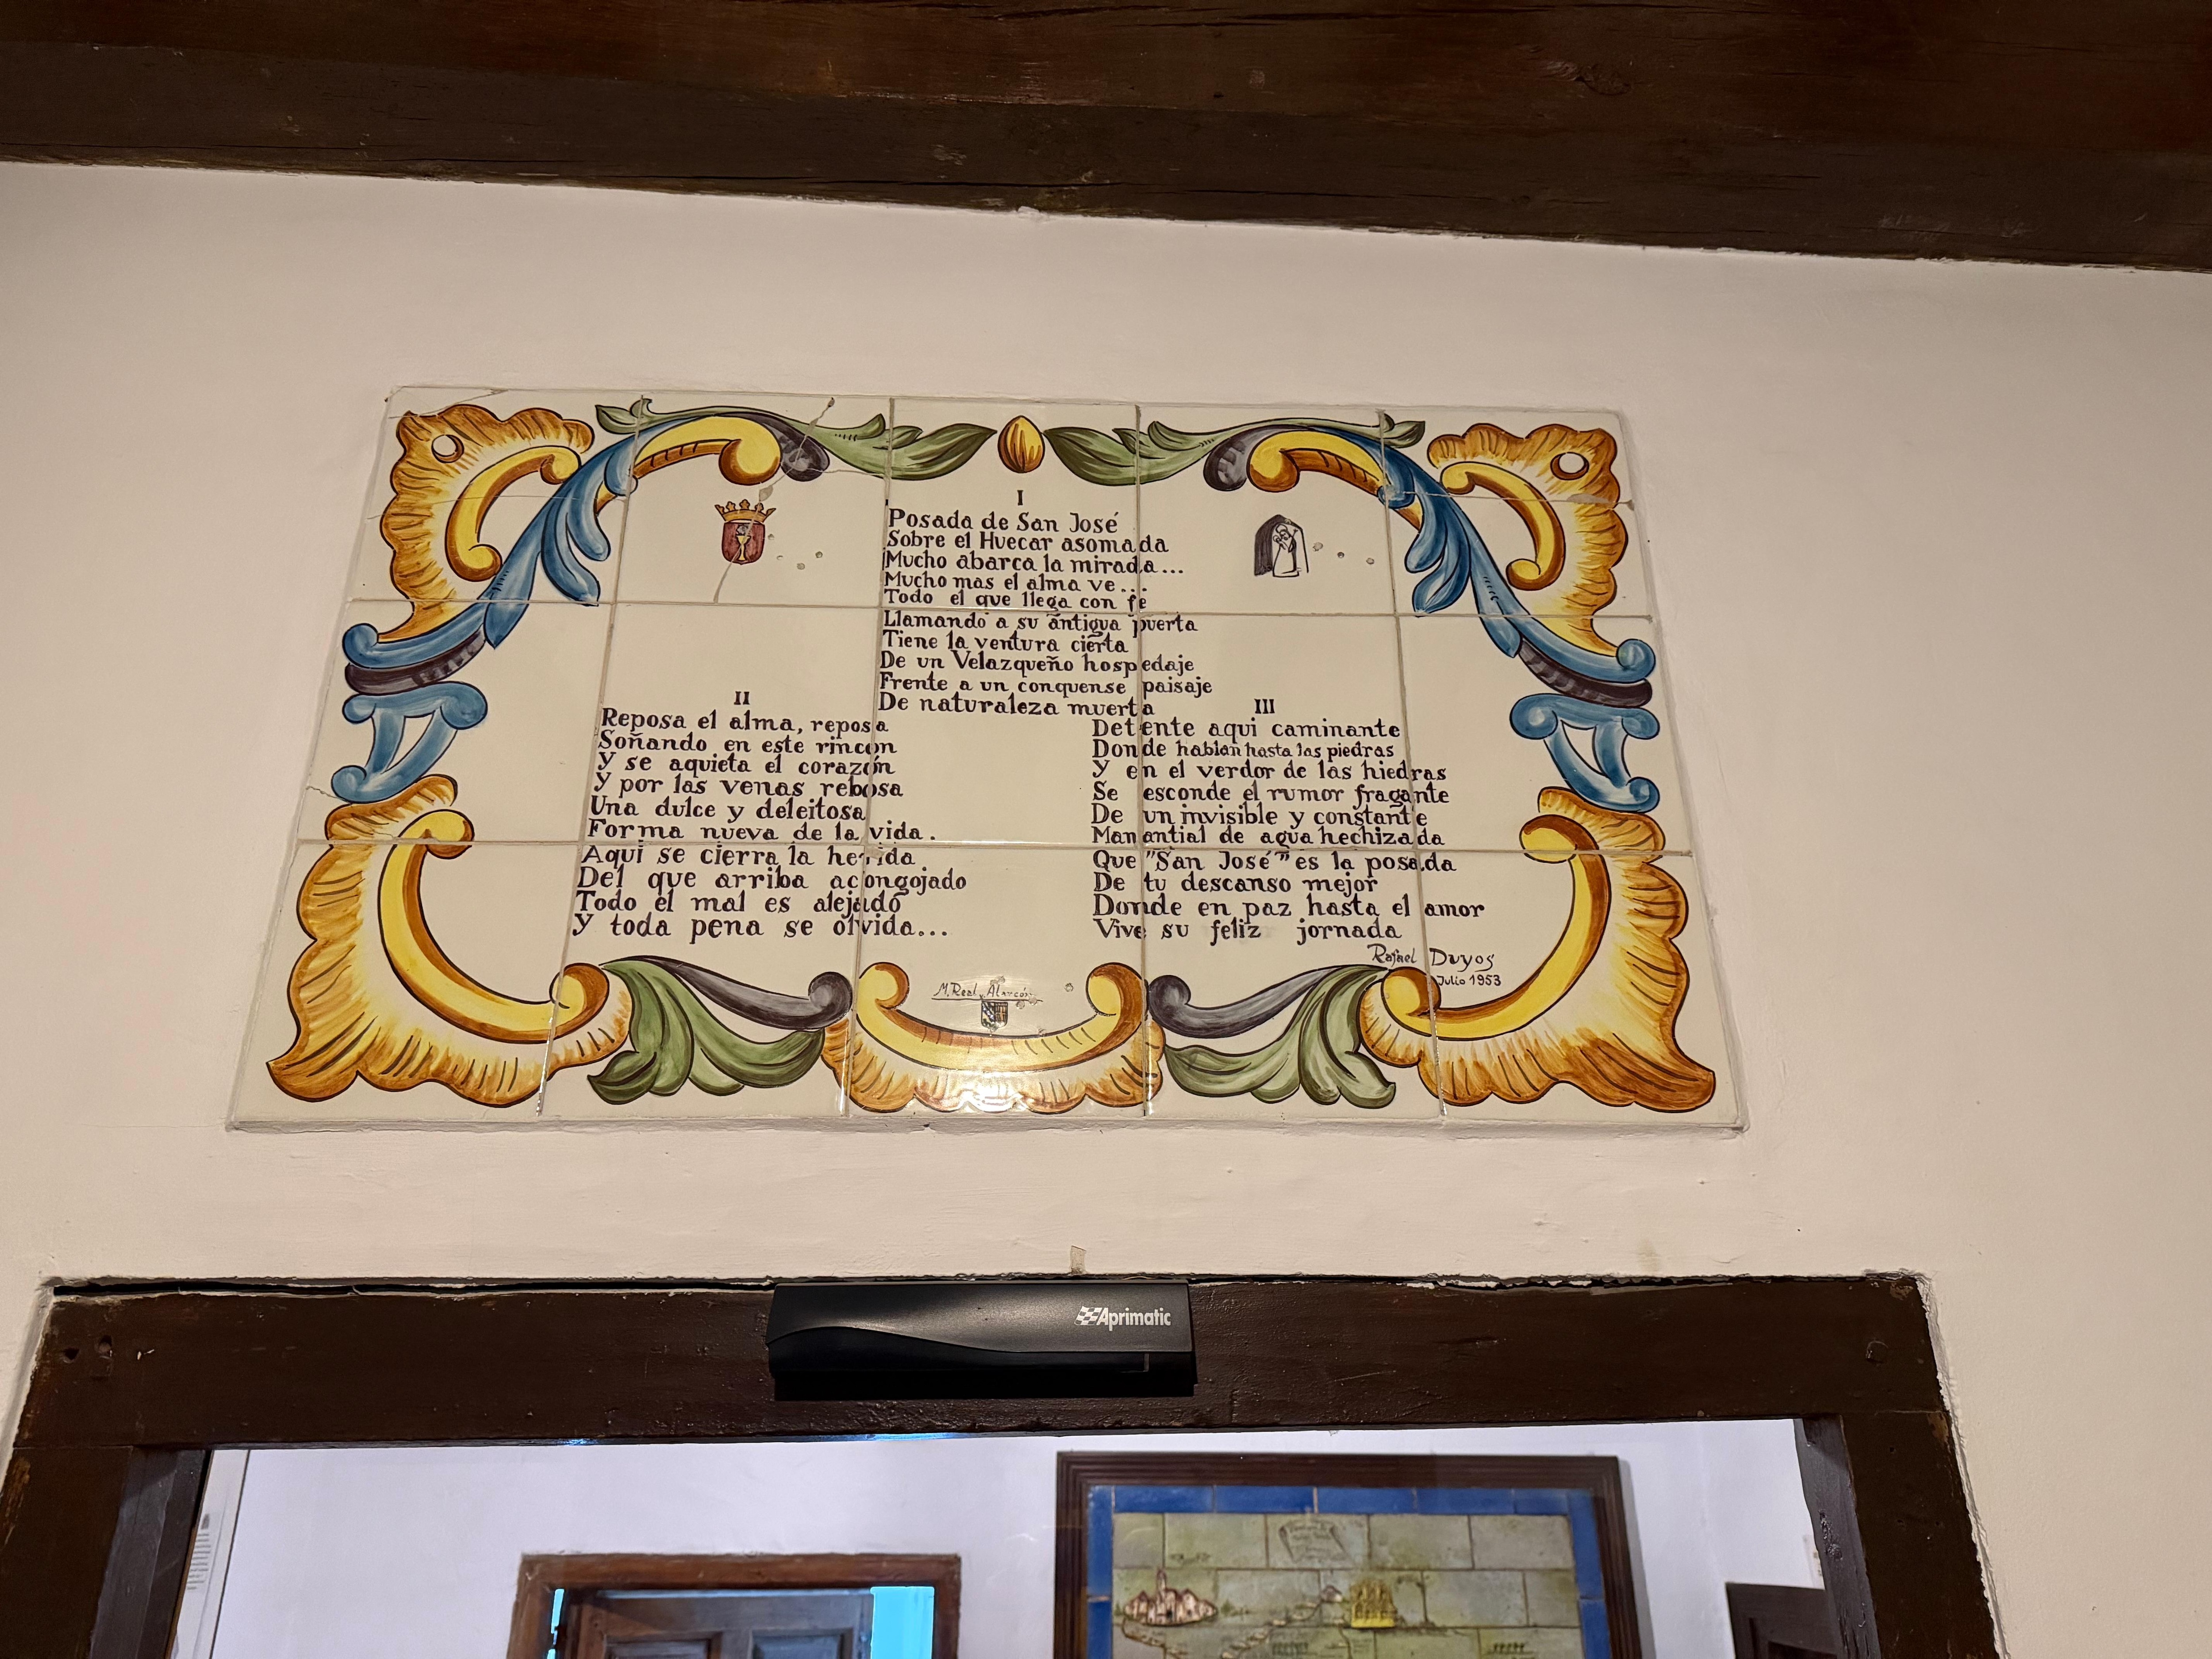 I
Posada de San José
Sobre el Huecar asomada
Mucho abarca la mirada...
Mucho mas el alma ve...
Todo el que llega con fe
Llamando a su antigua puerta
Tiene la ventura cierta
De un Velazqueño hospedaje
Frente a un conquense paisaje
De naturaleza muerta
II
Reposa el alma, reposa
Soñando en este rincón
Y se aquieta el corazón
Y por las venas rebosa
Una dulce y deleitosa
Forma nueva de la vida.
Aqui se cierra la herida
Del que arriba acongojado
Todo el mal es alejado
Y toda pena se olvida...
III
Detente aqui caminante
Donde hablan hasta las piedras
Y en el verdor de las hiedras
Se esconde el rumor fragante
De un invisible y constante
Manantial de agua hechizada
Que "San José" es la posada
De tu descanso mejor
Donde en paz hasta el amor
Vive su feliz jornada
Rafael Duyos
Julio 1953
M. Real Alarcón
Aprimatic